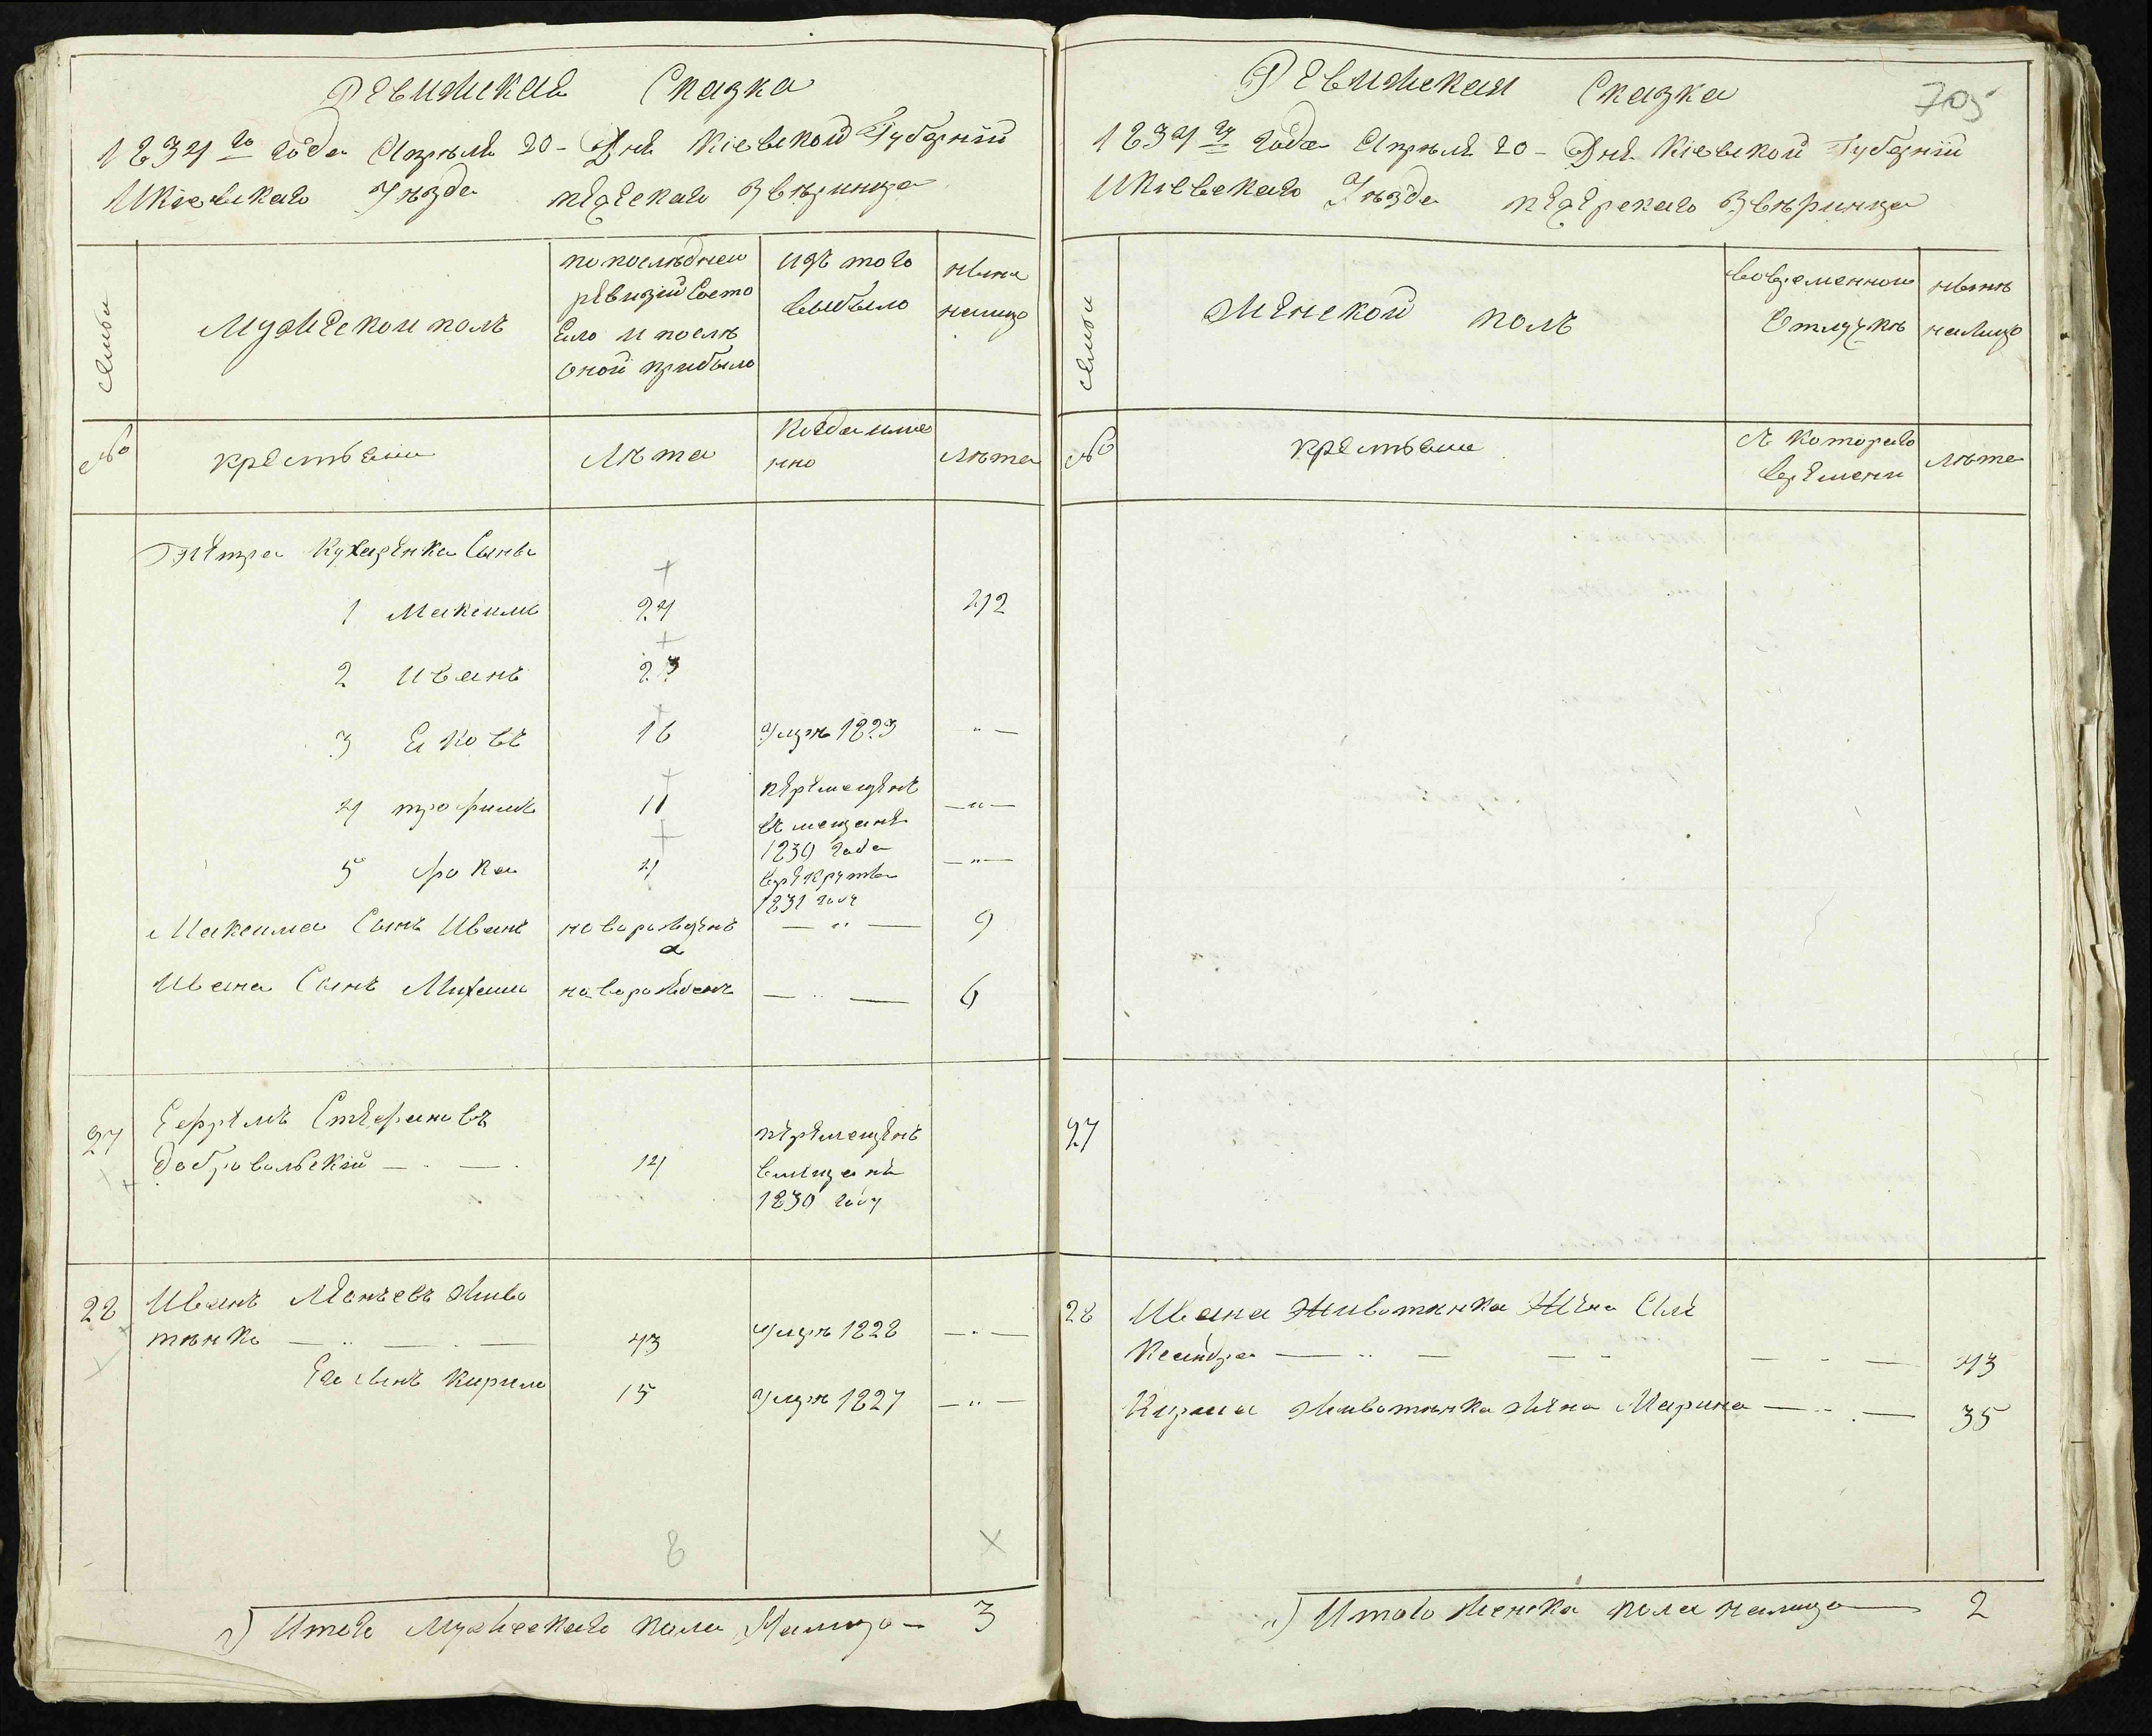 Ревижская Сказка
1834го года Апреля 20- Дня Кіевской Губернии
Икіевскаго Уезда печерскаго Зверинца
семьи
Мужеской полъ
попоследней
ревизии Состо
яло и после
оной прибыло
изъ того
выбыло
ныне
налицо
№
крестьяне
Лета
Когда име
нно
Лета
Петра Кухаренка Сыны
1 Максимъ 24 42
2 Иванъ 23
3 Яковъ 16 Умре 1823 -"-
4 трофимъ 11 перемещенъ -"-
въ мещане
1830 года
5 фока 4 врекруты -"-
1831 году
Максима Сынъ Иванъ новорожденъ -"- 9
Ивана Сынъ Михаила новорожденъ -"- 6
27 Ефремъ Стефановъ перемещенъ
Добровольский - . - . 14 вмещане
1830 году
28 Иванъ Живо
тенко 43 Умре 1828 -"-
Его сынъ Кирило 15 Умре 1827 -"-
8 ×
Итого Мужескаго пола Налицо - 3
Ревижская Сказка
705
1834го года Апреля 20- Дня Кіевской Губернии
Икіевскаго Уезда печерскаго Зверинца
семьи
Женской полъ
вовременной
Отлучке
ныне
налицо
№
крестьяне
съ котораго
времени
Лета
27
28 Ивана Животенка Жена Але
ксандра - " - 43
Кирила Животенка жена Марина - " - 35
Итого женска пола налицо - 2